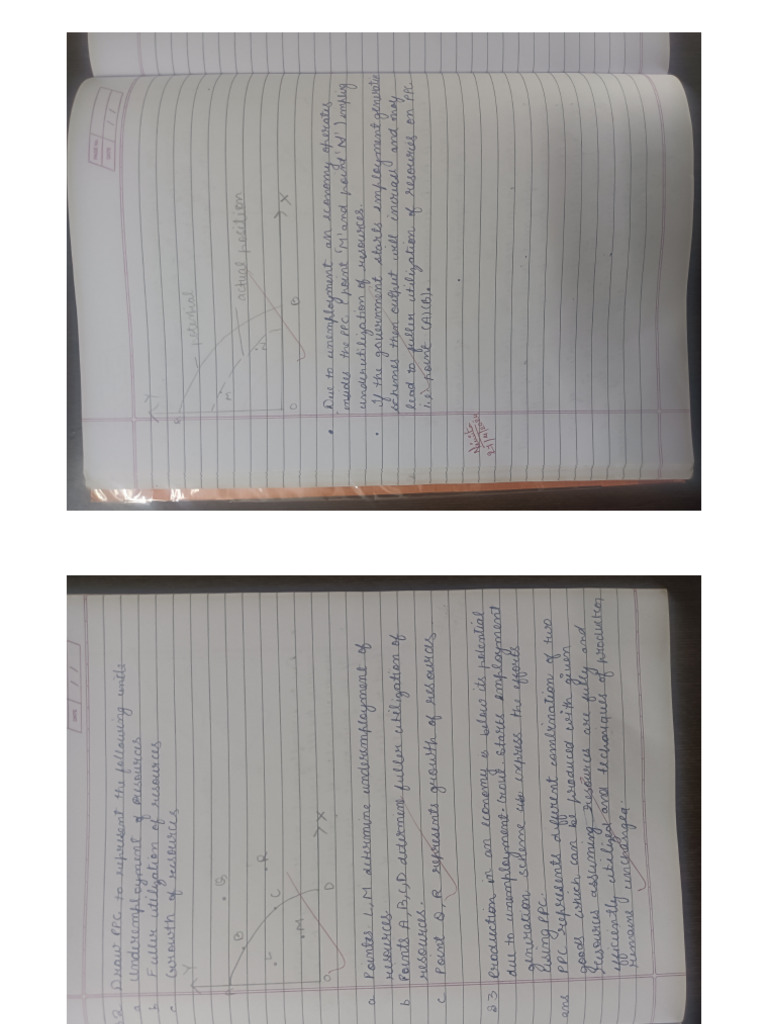 22 Draw PPC to represent the following units
a Underemployment of resources
b Fuller utilization of resources
c Growth of resources
Y
A
B
G
L
C
R
M
O
D
X
a Pointes L, M determine underemployment of
resources.
b Points A,B,C,D determent fuller utilization of
resources.
c Point Q, R represents growth of resources
23 Production in an economy is below its potential
due to unemployment. Govt. starts employment
generation scheme express the effects
Using PPC.
ans PPC represents different combination of two
goods which can be produced with given
resources assuming resources are fully and
efficiently utilized and techniques of production
remains unchanged.
PAGE No.
DATE / /
Y
A
potential
M
actual position
N
O
B
X
• Due to unemployment an economy operates
insides the PPC ( point 'M' and point 'N' )
underutilization of resources.
• If the government starts employment generate
schemes then output will increase and may
lead to fuller utilization of resources on PPC
i.e) point (A)(B).